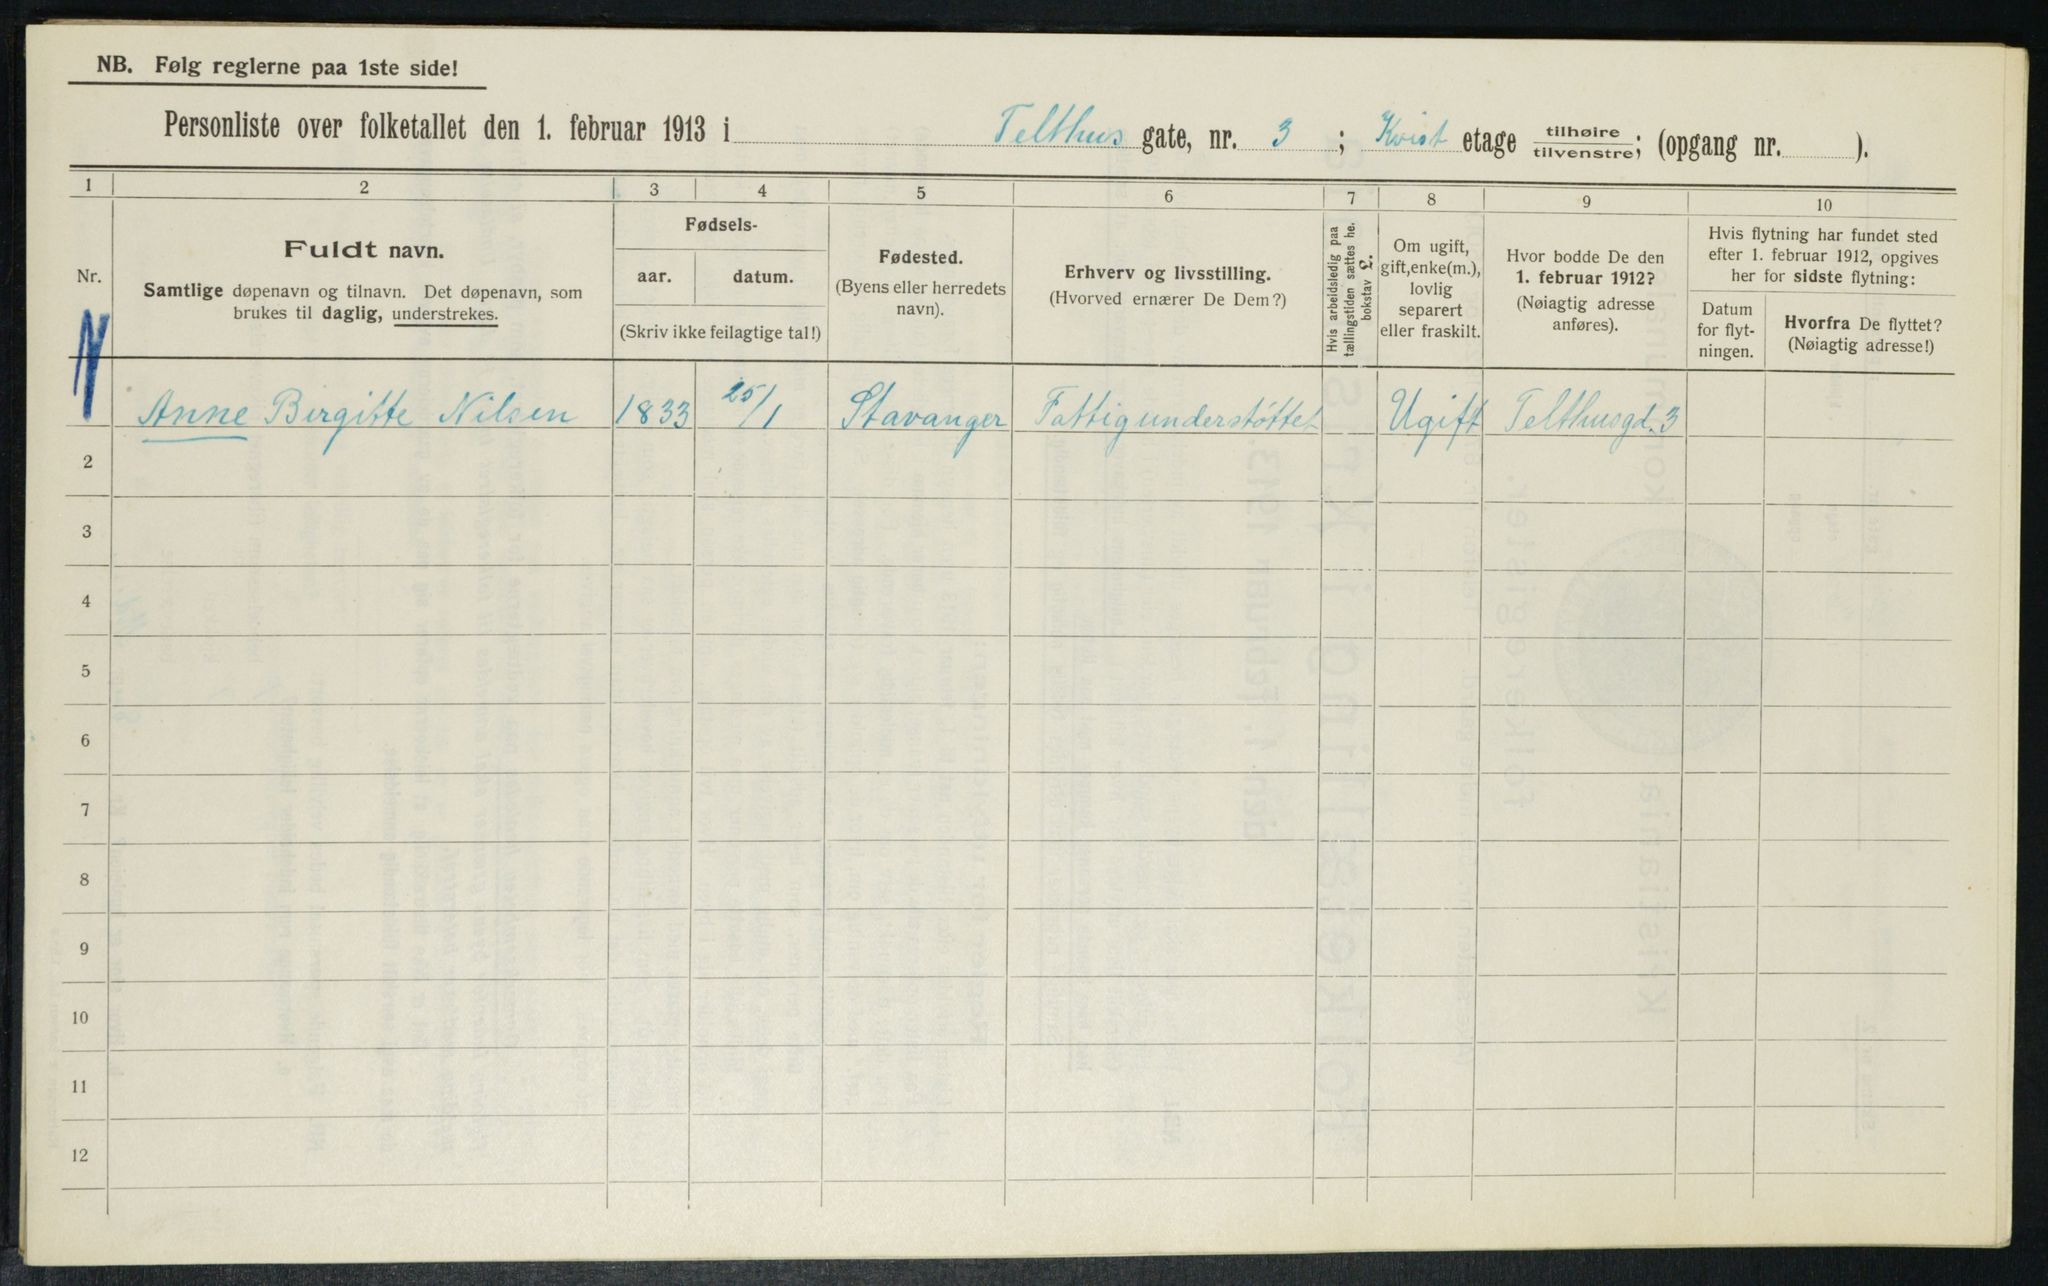 NB. Følg reglerne paa 1ste side!
Personliste over folketallet den 1. februar 1913 i Telthus gate, nr. 3 ; Kvist etage tilhøire/tilvenstre; (opgang nr. ).
1 2 3 4 5 6 7 8 9 10
Nr.
Fuldt navn.
Samtlige døpenavn og tilnavn. Det døpenavn, som
brukes til daglig, understrekes.
Fødsels-
aar. datum.
(Skriv ikke feilagtige tal!)
Fødested.
(Byens eller herredets
navn).
Erhverv og livsstilling.
(Hvorved ernærer De Dem?)
Hvis arbeidsledig paa
tællingstiden sættes he.
bokstav L.
Om ugift,
gift, enke(m.),
lovlig
separert
eller fraskilt.
Hvor bodde De den
1. februar 1912?
(Nøiagtig adresse
anføres).
Hvis flytning har fundet sted
efter 1. februar 1912, opgives
her for sidste flytning:
Datum
for flyt-
ningen.
Hvorfra De flyttet?
(Nøiagtig adresse!)
N
Anne Birgitte Nilsen 1833 25/1 Stavanger Fattigunderstøttet Ugift Telthusgd. 3
2
3
4
5
6
7
8
9
10
11
12